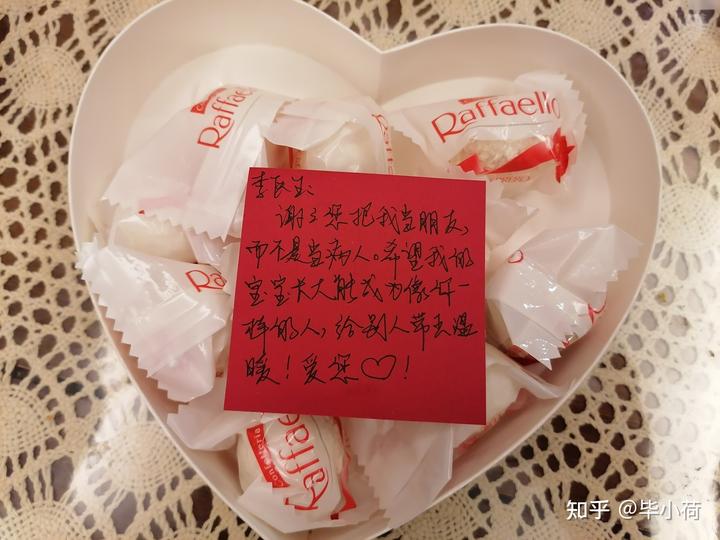 Raffaello
Raffaello
Ra
李医生:
谢谢您把我当朋友,
而不是当病人。希望我的
宝宝长大能成为像你一
样的人,给别人带去温
暖!爱您♡!
Raffae
confetteria
知乎 @毕小荷